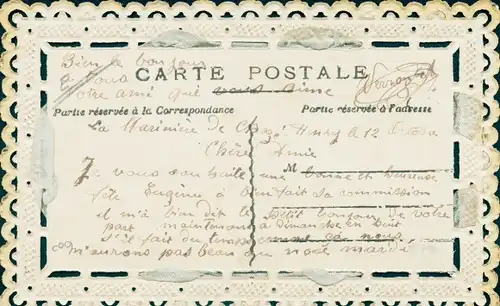 Bien le bonjour
a vous
votre ami qui vous aime
CARTE POSTALE
Partie réservée à la Correspondance
Partie réservée à l'adresse
La Marinière de le 12
Chère Amie
M
Je vous souhaite une bonne et heureuse
fête Eugène a bien fait sa commission
il m'a bien dit le petit bonjour de votre
part maintenant à dimanche en huit
s'il fait du temps comme ce nous
n'aurons pas beau mardi